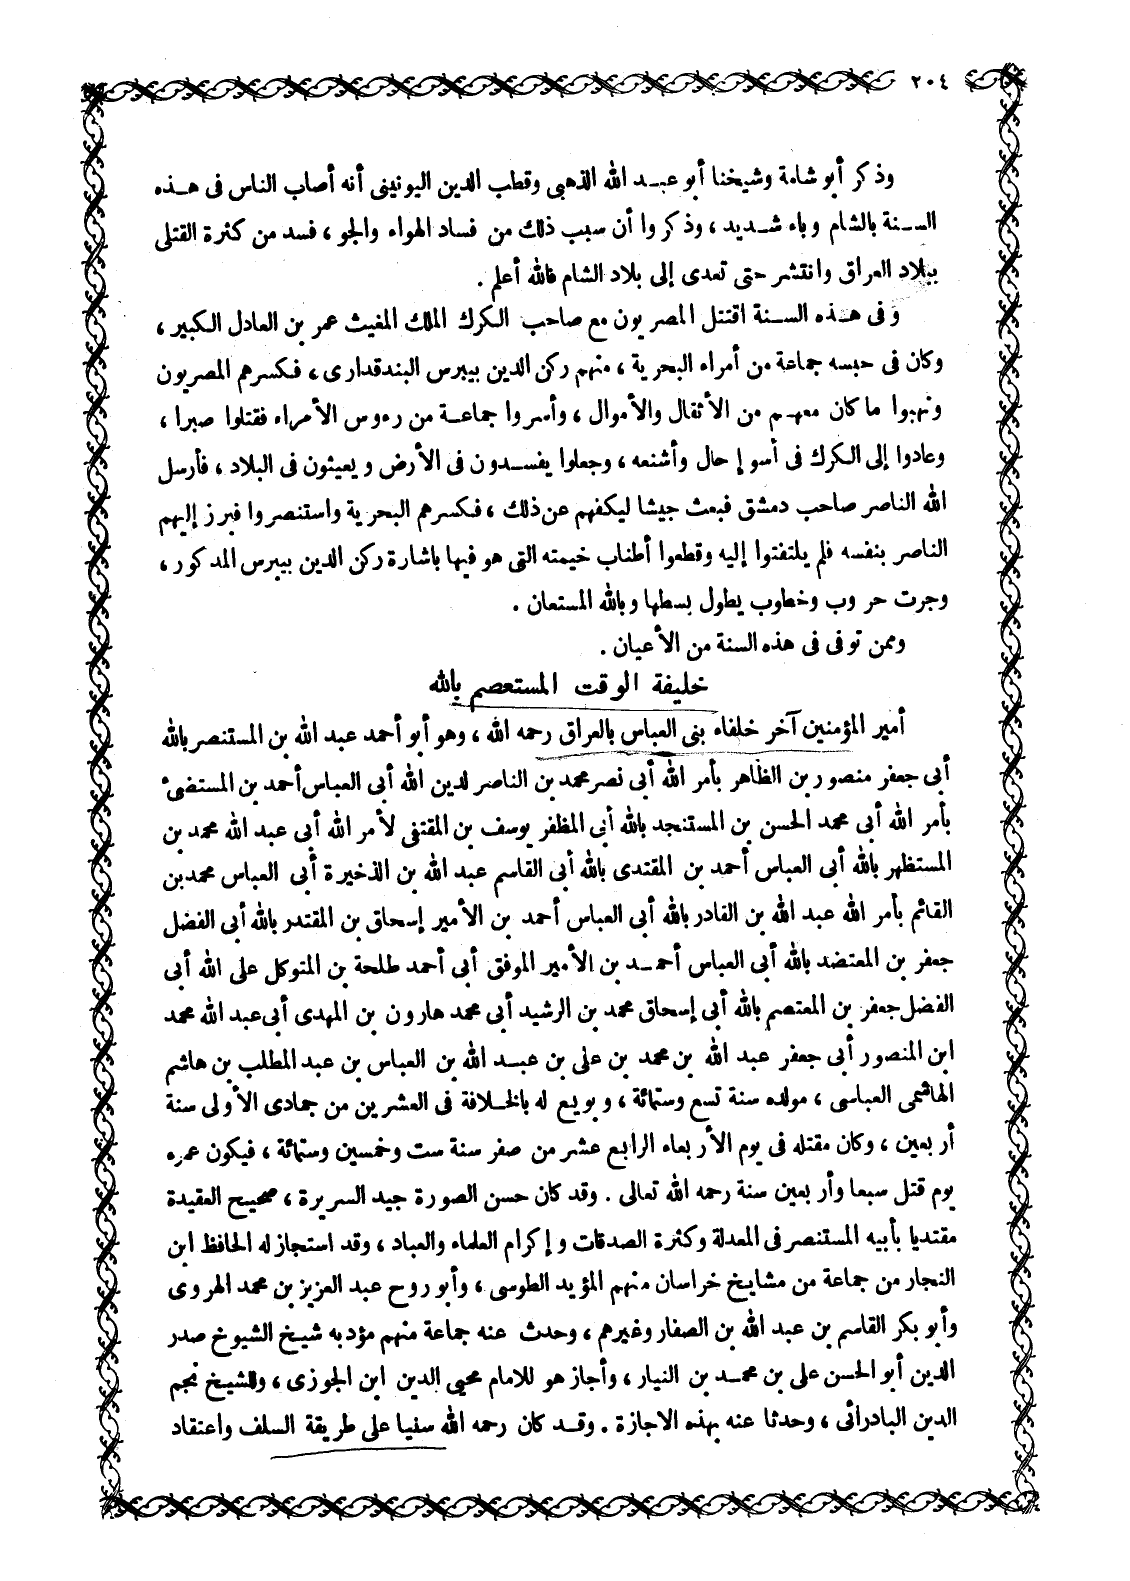 ٢٠٤
وذكر أبو شامة وشيخنا أبو عبد الله الذهبى وقطب الدين اليونينى أنه أصاب الناس فى هذه
السنة بالشام وباء شديد ، وذكروا أن سبب ذلك من فساد الهواء والجو ، فسد من كثرة القتلى
ببلاد العراق وانتشر حتى تعدى إلى بلاد الشام فالله أعلم .
وفى هذه السنة اقتتل المصريون مع صاحب الكرك الملك المغيث عمر بن العادل الكبير ،
وكان فى حبسه جماعة من أمراء البحرية ، منهم ركن الدين بيبرس البندقدارى ، فكسرهم المصريون
ونهبوا ما كان معهم من الأثقال والأموال ، وأسروا جماعة من رءوس الأمراء فقتلوا صبرا ،
وعادوا إلى الكرك فى أسوإ حال وأشنعه ، وجعلوا يفسدون فى الأرض ويعيثون فى البلاد ، فأرسل
الله الناصر صاحب دمشق فبعث جيشا ليكفهم عن ذلك ، فكسرهم البحرية واستنصروا فبرز إليهم
الناصر بنفسه فلم يلتفتوا إليه وقطعوا أطناب خيمته التى هو فيها باشارة ركن الدين بيبرس المدكور ،
وجرت حروب وخطوب يطول بسطها وبالله المستعان .
وممن توفى فى هذه السنة من الأعيان .
خليفة الوقت المستعصم بالله
أمير المؤمنين آخر خلفاء بنى العباس بالعراق رحمه الله ، وهو أبو أحمد عبد الله بن المستنصر بالله
أبى جعفر منصور بن الظاهر بأمر الله أبى نصر محمد بن الناصر لدين الله أبى العباس أحمد بن المستضىء
بأمر الله أبى محمد الحسن بن المستنجد بالله أبى المظفر يوسف بن المقتفى لأمر الله أبى عبد الله محمد بن
المستظهر بالله أبى العباس أحمد بن المقتدى بالله أبى القاسم عبد الله بن الذخيرة أبى العباس محمد بن
القائم بأمر الله عبد الله بن القادر بالله أبى العباس أحمد بن الأمير إسحاق بن المقتدر بالله أبى الفضل
جعفر بن المعتضد بالله أبى العباس أحمد بن الأمير الموفق أبى أحمد طلحة بن المتوكل على الله أبى
الفضل جعفر بن المعتصم بالله أبى إسحاق محمد بن الرشيد أبى محمد هارون بن المهدى أبى عبد الله محمد
ابن المنصور أبى جعفر عبد الله بن محمد بن على بن عبد الله بن العباس بن عبد المطلب بن هاشم
الهاشمى العباسى ، مولده سنة تسع وستمائة ، وبويع له بالخلافة فى العشرين من جمادى الأولى سنة
أربعين ، وكان مقتله فى يوم الأربعاء الرابع عشر من صفر سنة ست وخمسين وستمائة ، فيكون عمره
يوم قتل سبعا وأربعين سنة رحمه الله تعالى . وقد كان حسن الصورة جيد السريرة ، صحيح العقيدة
مقتديا بأبيه المستنصر فى المعدلة وكثرة الصدقات وإكرام العلماء والعباد ، وقد استجاز له الحافظ ابن
النجار من جماعة من مشايخ خراسان منهم المؤيد الطوسى ، وأبو روح عبد العزيز بن محمد الهروى
وأبو بكر القاسم بن عبد الله بن الصفار وغيرهم ، وحدث عنه جماعة منهم مؤدبه شيخ الشيوخ صدر
الدين أبو الحسن على بن محمد بن النيار ، وأجاز هو للامام محيى الدين ابن الجوزى ، وللشيخ نجم
الدين البادرائى ، وحدثا عنه بهذه الاجازة . وقد كان رحمه الله سنيا على طريقة السلف واعتقاد